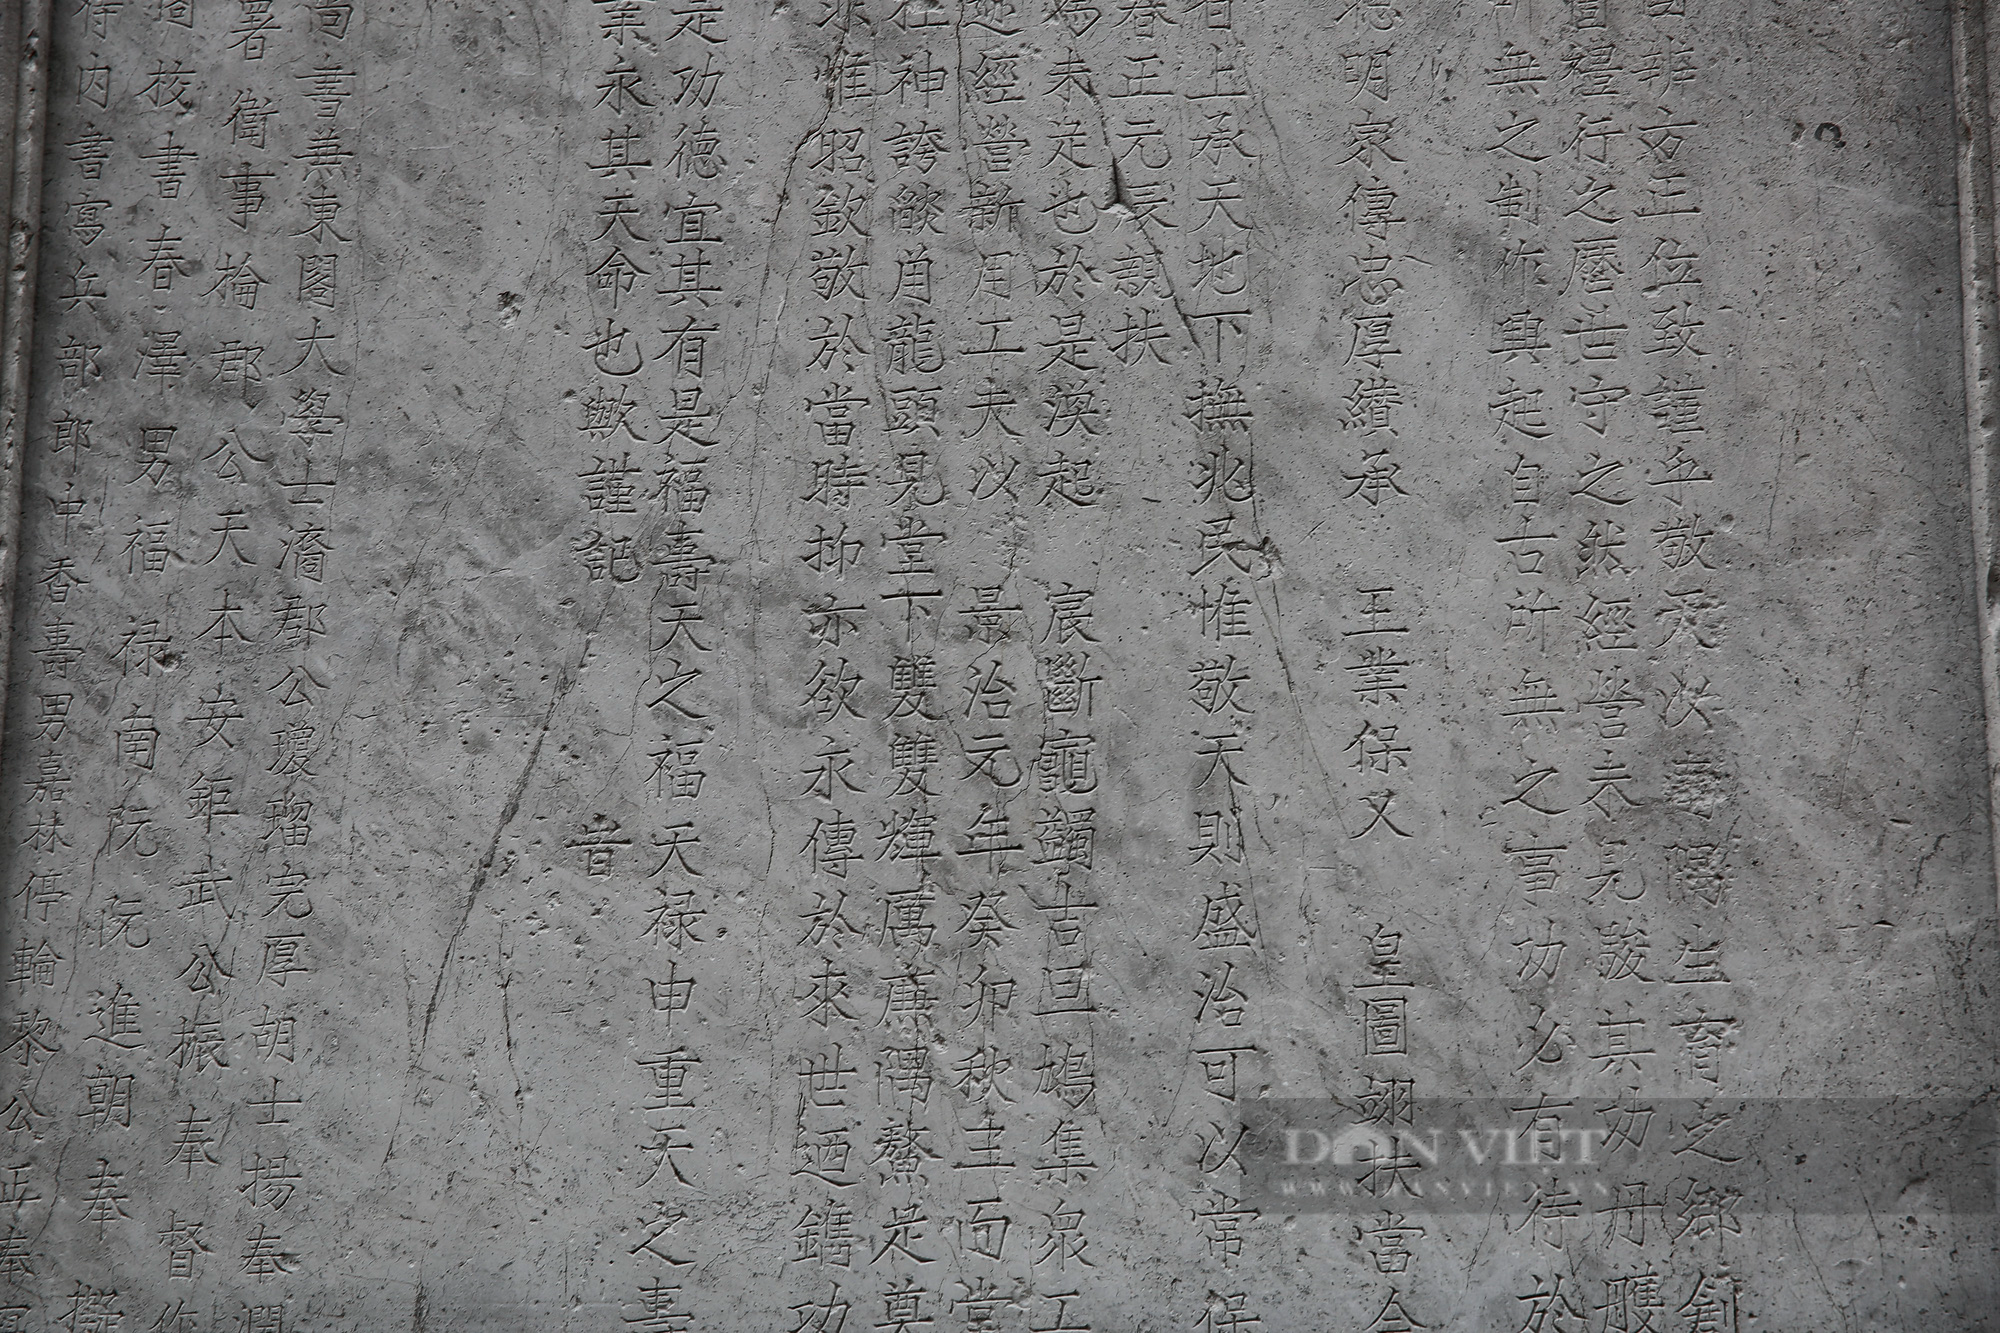 辨方正位致謹乎敬天次壽隅生育之鄉創
禮行之歷世守之然經營未見駿其功丹雘
所無之制作興起自古所無之事功必有待於
德明家傳忠厚纘承 王業保乂 皇圖翊扶當今
上承天地下撫兆民惟敬天則盛治可以常保
春正元辰親扶
焉未定也於是渙起 宸斷龜蠲吉旦鳩集眾工
經營新用工夫以 景治元年癸卯秋主而堂
在神誇燄角龍頭見堂下雙雙輝厲庚隅鰲足奠
惟昭欽敬於當時抑亦欲永傳於來世迺鐫功
是功德宜其有是福壽天之福天祿申重天之壽
業永其天命也歟謹記 昔
尚書兼東閣大學士濳郡公瓊瑠完厚胡士揚奉潤
署衛事掄郡公天本安鉅武公振奉督作
核書春澤男福祿南阮阮進朝奉擬
侍內書寫兵部郎中香壽男嘉林停輪黎公正奉寫
DÂN VIỆT
WWW.DANVIET.VN